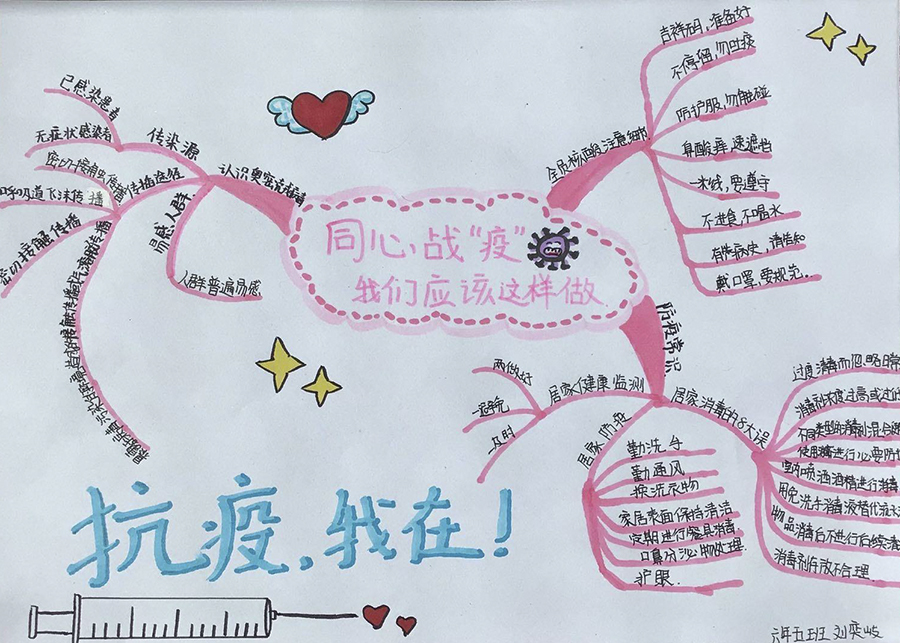 同心战“疫”
我们应该这样做
认识奥密克戎毒
传染源
已感染患者
无症状感染者
传播途径
呼吸道飞沫传播
密切接触传播
易感人群
人群普遍易感
全员核酸注意细节
吉祥码，准备好
不停留，勿吐痰
防护服，勿触碰
鼻酸弄，速遮挡
一米线，要遵守
不进食，不喝水
有特病史，请告知
戴口罩，要规范
防疫常识
居家健康监测
两做好
一避免
一及时
居家防疫
勤洗手
勤通风
换洗衣物
家居表面保持清洁
定期进行餐具消毒
口鼻分泌物处理
护眼
居家消毒的8大误
过度消毒而忽略日常
消毒剂浓度过高或过低
不同类型的消毒剂混合
使用酒精进行必要防
室内喷洒酒精进行消毒
用免洗手消毒液替代流水
物品消毒后不进行后续清
消毒剂存放不合理
抗疫，我在！
六年五班 刘奕岐